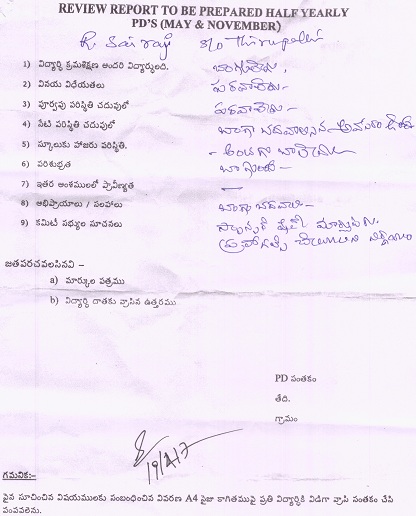 REVIEW REPORT TO BE PREPARED HALF YEARLY
PD'S (MAY & NOVEMBER)
R. Sai raj s/o Thirupathi
1) విద్యార్థి క్రమశిక్షణ అందరి విద్యార్థులది.
2) వినయ విధేయతలు పరవాలేదు-
3) పూర్వపు పరిస్థితి చదువులో పరవాలేదు-
4) నేటి పరిస్థితి చదువులో బాగా చదవాలసిన అవసరం
5) స్కూలుకు హాజరు పరిస్థితి.
6) పరిశుభ్రత బాగుంది-
7) ఇతర అంశములలో ప్రావీణ్యత —
8) అభిప్రాయాలు / సలహాలు బాగా చదవాలి-
9) కమిటీ సభ్యుల సూచనలు
జతపరచవలసినవి -
a) మార్కుల పత్రము
b) విద్యార్థి దాతకు వ్రాసిన ఉత్తరము
PD సంతకం
తేది.
గ్రామం
19/4/17
గమనిక:-
పైన సూచించిన విషయములకు సంబంధించిన వివరణ A4 సైజు కాగితముపై ప్రతి విద్యార్థికి విడిగా వ్రాసి సంతకం చేసి
పంపవలెను.